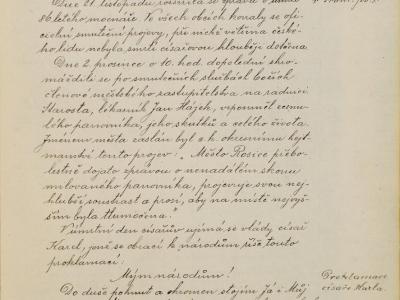 Dne 21. listopadu rozšířila se zpráva o úmrtí
86 letého mocnáře. Ve všech obcích konaly se ofi-
cielní smuteční projevy, při nichž většina česke-
ho lidu nebyla smrtí císařovou hlouběji dotčena.
Dne 2. prosince o 10. hod. dopolední shro-
máždili se po smutečních službách božích
členové městského zastupitelstva na radnici
Starosta, lékárník Jan Hájek, vzpomněl zesnu-
lého panovníka, jeho skutků a celého života
Jménem města zaslán byl c. k. okresnímu hejt-
manství tento projev: „Město Rosice přebo-
lestně dojato zprávou o nenadálém skonu
milovaného panovníka, projevuje svou nej-
hlubší soustrast a prosí, aby na místě nejvyš-
ším byla tlumočena."
V úmrtní den císařův ujímá se vlády císař
Karel, jenž se obrací k národům říše touto
proklamací:
Mým národům!
Do duše pohnut a ohromen stojím Já i Můj
Proklamace
císaře Karla.